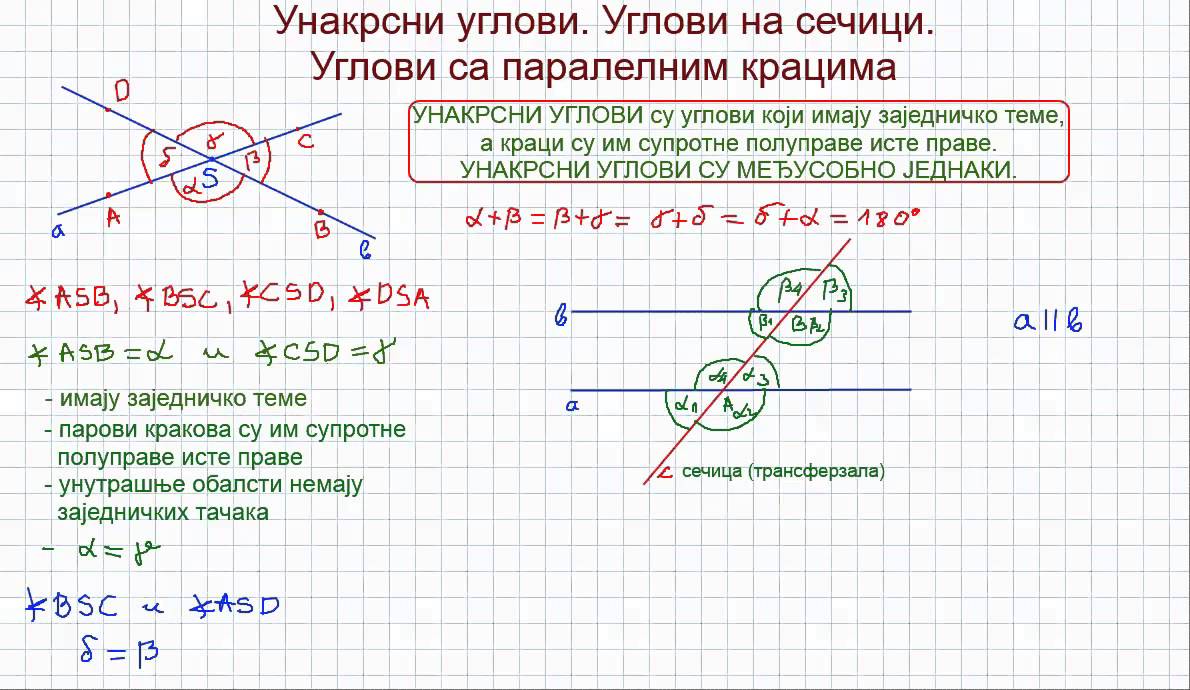 Унакрсни углови. Углови на сечици.
Углови са паралелним крацима
УНАКРСНИ УГЛОВИ су углови који имају заједничко теме,
а краци су им супротне полуправе исте праве.
УНАКРСНИ УГЛОВИ СУ МЕЂУСОБНО ЈЕДНАКИ.
D
γ
C
δ
β
S
α
A
B
a
b
α+β = β+γ = γ+δ = δ+α = 180°
∢ASB, ∢BSC, ∢CSD, ∢DSA
∢ASB = α и ∢CSD = γ
- имају заједничко теме
- парови кракова су им супротне
полуправе исте праве
- унутрашње обалсти немају
заједничких тачака
- α = γ
∢BSC и ∢ASD
δ = β
β4 β3
b
β1 B β2
a || b
α4 α3
a
α1 A α2
c сечица (трансферзала)